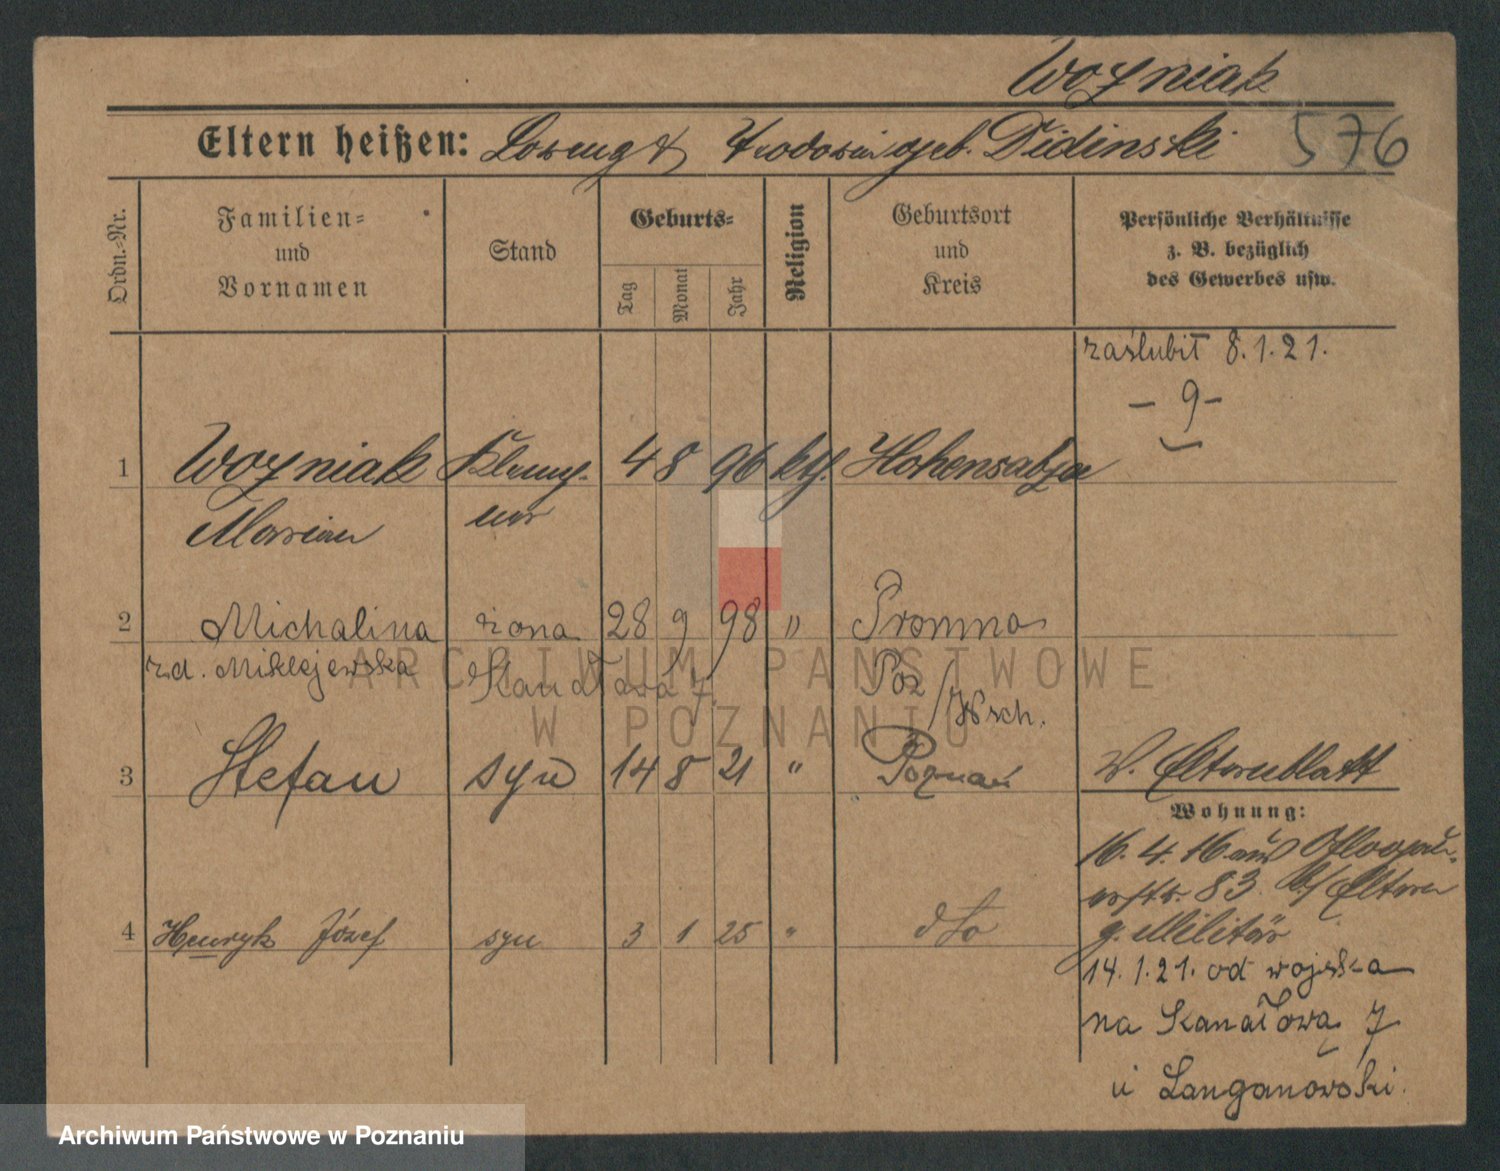 Wozniak
Eltern heißen: Lorenz & Teodosia geb. Didinski
576
Ordn.=Nr.
Familien=
und
Vornamen
Stand
Geburts=
Tag
Monat
Jahr
Religion
Geburtsort
und
Kreis
Persönliche Verhältnisse
z. B. bezüglich
des Gewerbes usw.
zaślubił 8.1.21.
- 9 -
1 Wozniak 4 8 96 kth. Hohensalza
Marian
2 Michalina żona 28 9 98 " Promno
zd. Mikłejewska Kanałowa 7. Poz/Wsch.
3 Stefan syn 14 8 21 " Poznań
W. Elternblatt
Wohnung:
16.4.16 aus Glogau-
erstr. 83. b/ Eltern
z. Militär
4 Henryk Józef syn 3 1 25 " dto
14.1.21. od wojska
na Kanałowa 7
u Langanowski.
ARCHIWUM PAŃSTWOWE
W POZNANIU
Archiwum Państwowe w Poznaniu